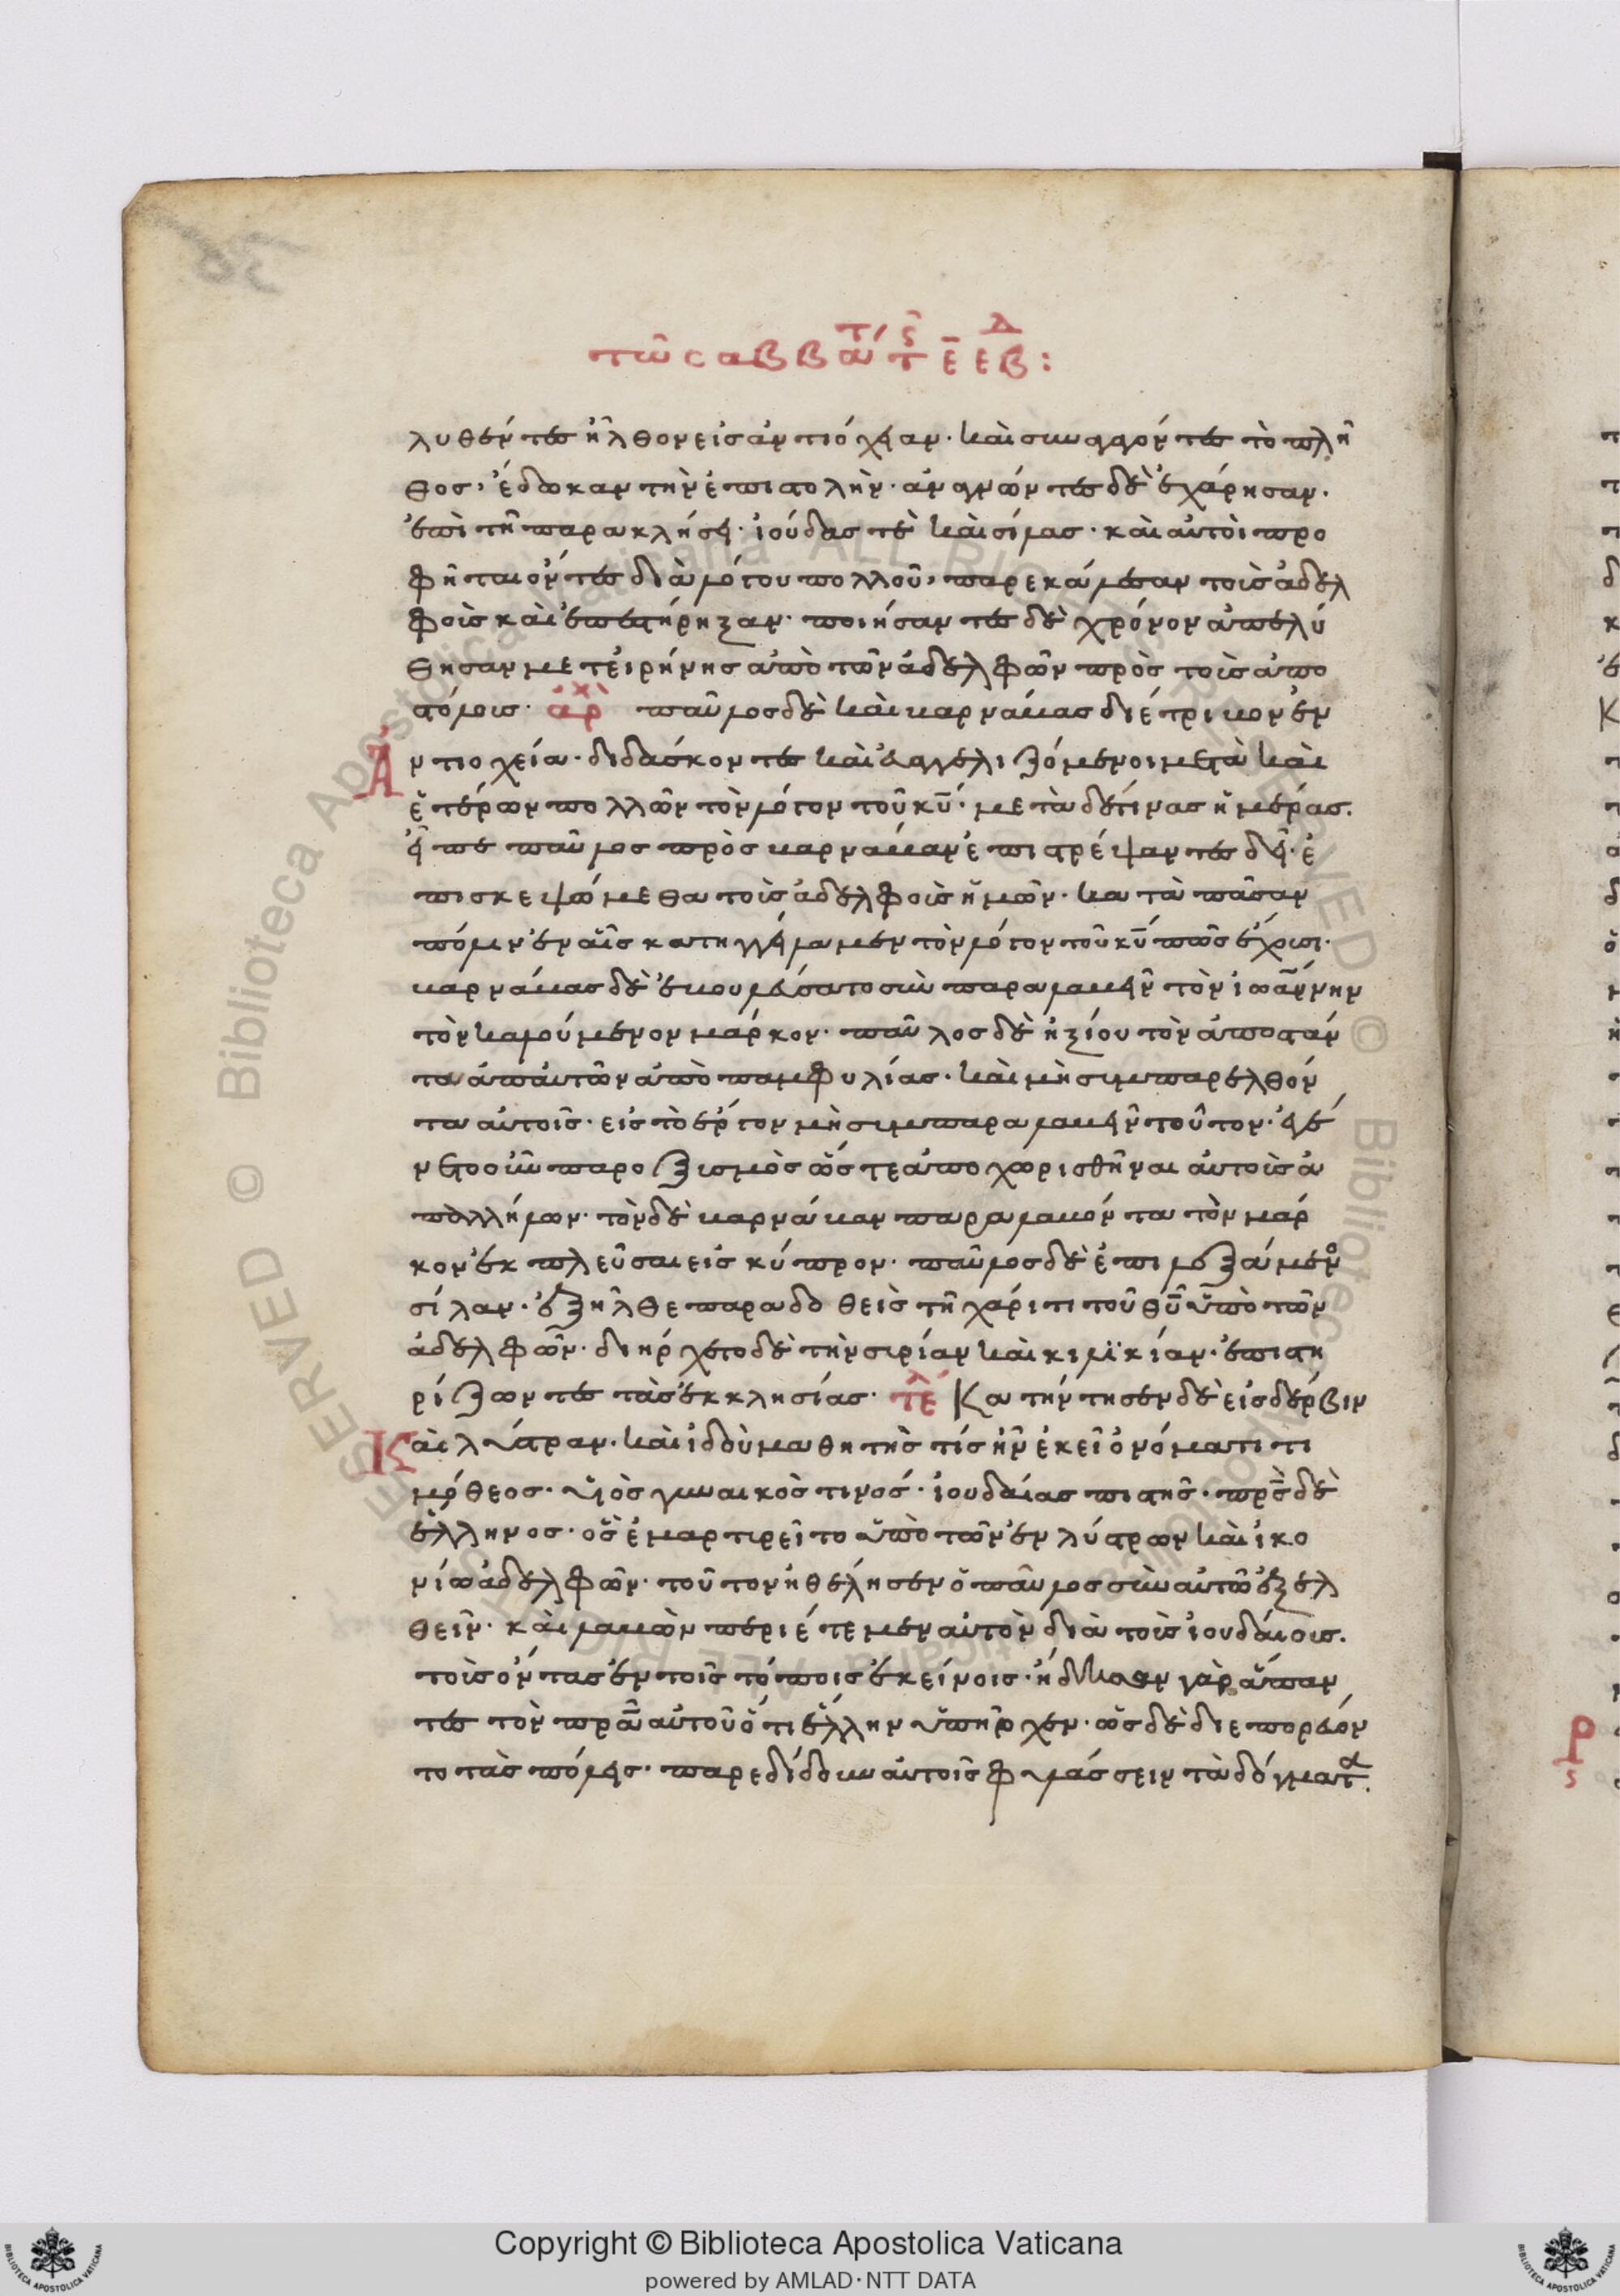 τῶ σαββάτ ς τ ε εβδ:
λυθέντες ἦλθον εἰς ἀντιόχειαν· καὶ συναγαγόντες τὸ πλῆ
θος, ἐδωκαν τὴν ἐπιστολὴν· ἀναγνώντες δὲ ἐχάρησαν·
ἐπὶ τῆ παρακλήσει· ἰούδας τὲ καὶ σίλας· καὶ αὐτοὶ προ
φῆται όντες διὰ λόγου πολλοῦ, παρεκάλεσαν τοὺς ἀδελ
φοὺς καὶ ἐπεστήρηξαν· ποιήσαντες δὲ χρόνον ἀπελύ
θησαν μετ εἰρήνης ἀπὸ τῶν ἀδελφῶν πρὸς τοὺς ἀπο
στόλους· ἀρχ παῦλος δὲ καὶ βαρνάβας διέτριβον ἐν
Ἀντιοχεία· διδάσκοντες καὶ εὐαγγελιζόμενοι μετὰ καὶ
ἑτέρων πολλῶν τὸν λόγον τοῦ κυ· μετὰ δέ τινας ἡμέρας·
εἶπε παῦλος πρὸς βαρνάβαν ἐπιστρέψαντες δεῖ· ἐ
πισκεψώμεθα τοὺς ἀδελφοὺς ἡμῶν· κατὰ πᾶσαν
πόλιν ἐν αἷς κατηγγείλαμεν τὸν λόγον τοῦ κυ πῶς ἐχουσι·
βαρνάβας δὲ ἐβουλεύσατο συμπαραλαβεῖν τὸν ἰωάννην
τὸν καλούμενον μάρκον· παῦλος δὲ ἠξίου τὸν ἀποσταν
τα ἀπ αυτῶν ἀπὸ παμφυλίας· καὶ μὴ συμπαρελθόν
τα αὐτοῖς· εἰς τὸ ἐργον μὴ συμπαραλαβεῖν τοῦτον· ἐγέ
νετο οὖν παροξισμὸς ὥστε ἀποχωρισθῆναι αὐτοὺς ἀ
πολλήλων· τὸν δὲ βαρνάβαν παραλαβόντα τὸν μάρ
κον ἐκπλεῦσαι εἰς κύπρον· παῦλος δὲ ἐπιλεξάμενο
σίλαν· ἐξῆλθε παραδοθεὶς τῆ χάριτι τοῦ θυ ὑπὸ τῶν
ἀδελφῶν· διήρχετο δὲ τὴν συρίαν καὶ κιλικίαν· ἐπιστη
ρίζων τες τὰς ἐκκλησίας· τελ Κατήντησεν δὲ εἰς δέρβιν
Καὶ λύστραν· καὶ ἰδοὺ μαθητὴς τίς ἦν ἐκεῖ ὀνόματι τι
μόθεος· υἱὸς γυναικὸς τινός· ἰουδαίας πιστῆς· πρς δὲ
ἕλληνος· ὃς ἐμαρτυρεῖτο ὑπὸ τῶν ἐν λύστρων καὶ ἰκο
νίω ἀδελφῶν· τοῦτον ἠθέλησεν ὁ παῦλος σὺν αὐτῶ ἐξελ
θεῖν· καὶ λαβὼν περιέτεμεν αὐτὸν διὰ τοὺς ἰουδαίους·
τοὺς όντας ἐν τοῖς τόποις ἐκείνοις· ἠδεισαν γὰρ ἅπαν
τες τὸν πρα αὐτοῦ ὅτι ἕλλην ὑπῆρχεν· ὡς δὲ διεπορεύον
το τὰς πόλεις· παρεδίδουν αὐτοῖς φυλάσσειν τὰ δόγματα·